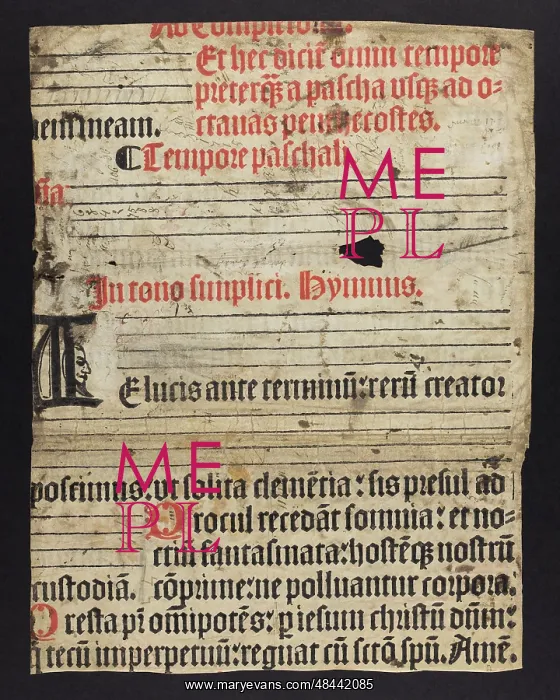 Ad Completoriū.
Et hec dicit̄ omni tempore
preterq̄ȝ a pascha vsqȝ ad o⸗
meam.
ctauas penthecostes.
Tempore paschali
In tono simplici. Hymnus.
TE lucis ante terminū: rerū creator
poscimus: vt solita clemētia: sis presul ad
Procul recedāt somnia: et no⸗
ctiū fantasmata: hostēqȝ nostrū
custodiā. cōprime: ne polluantur corpora.
Presta pr̄ omīpotēs: ꝑ iesum christū dn̄m:
q̄ tecū imperpetuū: regnat cū sctō spū. Amē.
ME
PL
ME
PL
www.maryevans.com/48442085